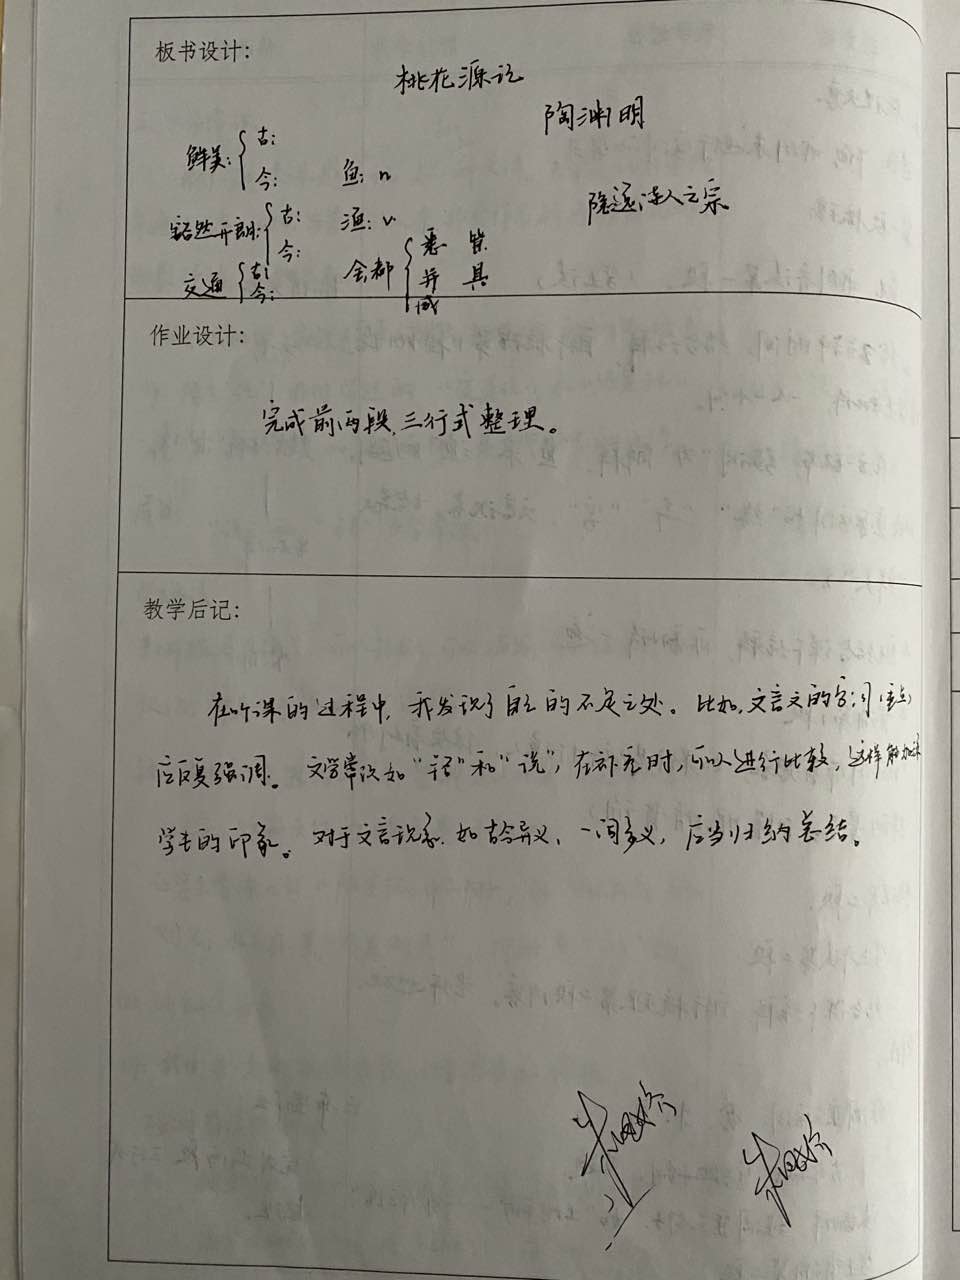 板书设计：
桃花源记
陶渊明
鲜美：{古：
今：
鱼：n
隐逸诗人之宗
豁然开朗：{古：
今：
渔：v
交通{古：
今：
全都{悉 皆
并 具
咸
作业设计：
完成前两段，三行式整理。
教学后记：
在听课的过程中，我发现了自己的不足之处。比如，文言文的字词（重点）
应反复强调。文学常识如“记”和“说”，在补充时，可以进行比较，这样能加深
学生的印象。对于文言现象，如古今异义、一词多义，应当归纳总结。